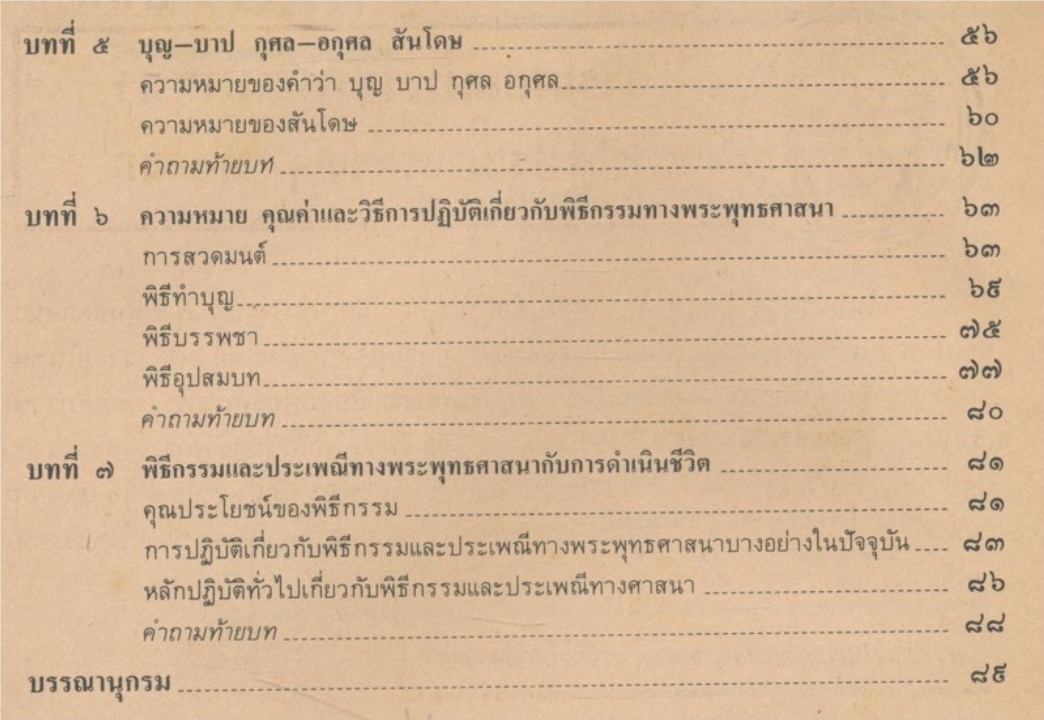 บทที่ ๕ บุญ–บาป กุศล–อกุศล สันโดษ ๕๖
ความหมายของคำว่า บุญ บาป กุศล อกุศล ๕๖
ความหมายของสันโดษ ๖๐
คำถามท้ายบท ๖๒
บทที่ ๖ ความหมาย คุณค่าและวิธีการปฏิบัติเกี่ยวกับพิธีกรรมทางพระพุทธศาสนา ๖๓
การสวดมนต์ ๖๓
พิธีทำบุญ ๖๙
พิธีบรรพชา ๗๕
พิธีอุปสมบท ๗๗
คำถามท้ายบท ๘๐
บทที่ ๗ พิธีกรรมและประเพณีทางพระพุทธศาสนากับการดำเนินชีวิต ๘๑
คุณประโยชน์ของพิธีกรรม ๘๑
การปฏิบัติเกี่ยวกับพิธีกรรมและประเพณีทางพระพุทธศาสนาบางอย่างในปัจจุบัน ๘๓
หลักปฏิบัติทั่วไปเกี่ยวกับพิธีกรรมและประเพณีทางศาสนา ๘๖
คำถามท้ายบท ๘๘
บรรณานุกรม ๘๙